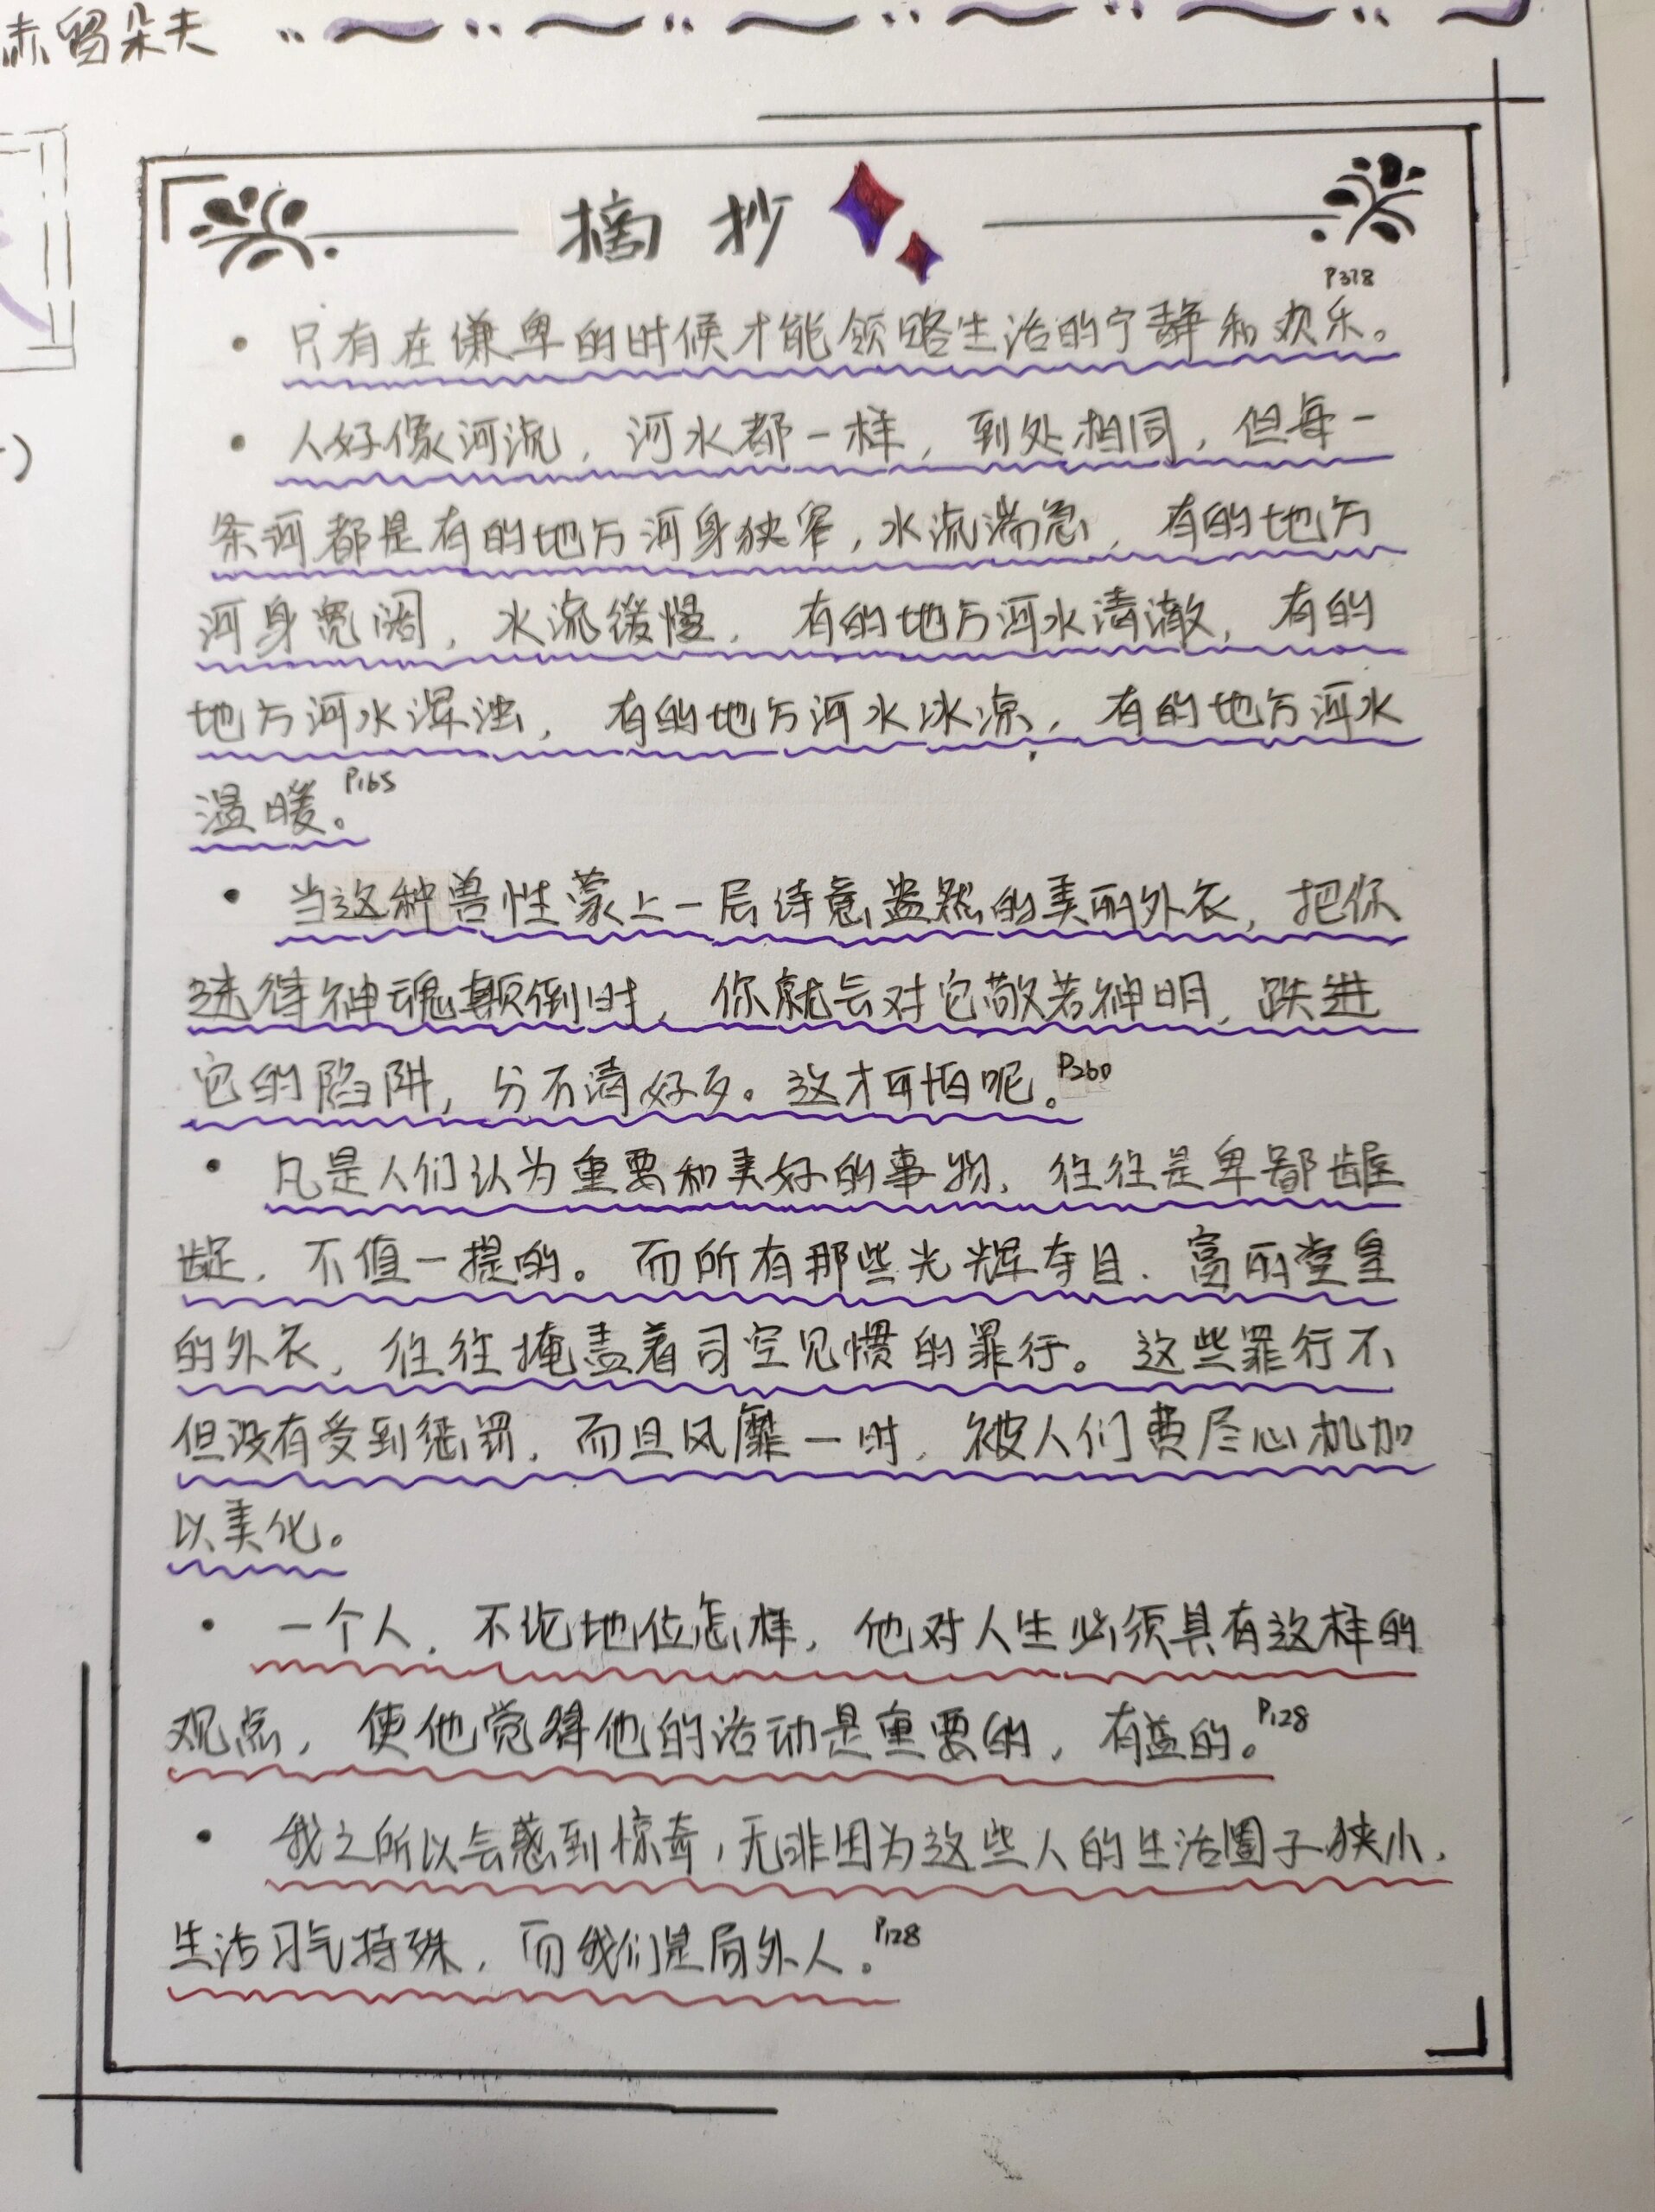 赤留朵夫
摘抄
P378
·只有在谦卑的时候才能领略生活的宁静和欢乐。
·人好像河流，河水都一样，到处相同，但每一
条河都是有的地方河身狭窄，水流湍急，有的地方
河身宽阔，水流缓慢，有的地方河水清澈，有的
地方河水浑浊，有的地方河水冰凉，有的地方河水
温暖。P165
·当这种兽性蒙上一层诗意盎然的美丽外衣，把你
迷得神魂颠倒时，你就会对它敬若神明，跌进
它的陷阱，分不清好歹。这才可怕呢。P260
·凡是人们认为重要和美好的事物，往往是卑鄙龌
龊，不值一提的。而所有那些光辉夺目、富丽堂皇
的外衣，往往掩盖着司空见惯的罪行。这些罪行不
但没有受到惩罚，而且风靡一时，被人们费尽心机加
以美化。
·一个人，不论地位怎样，他对人生必须具有这样的
观点，使他觉得他的活动是重要的，有益的。P128
·我之所以会感到惊奇，无非因为这些人的生活圈子狭小，
生活习气特殊，而我们是局外人。P128